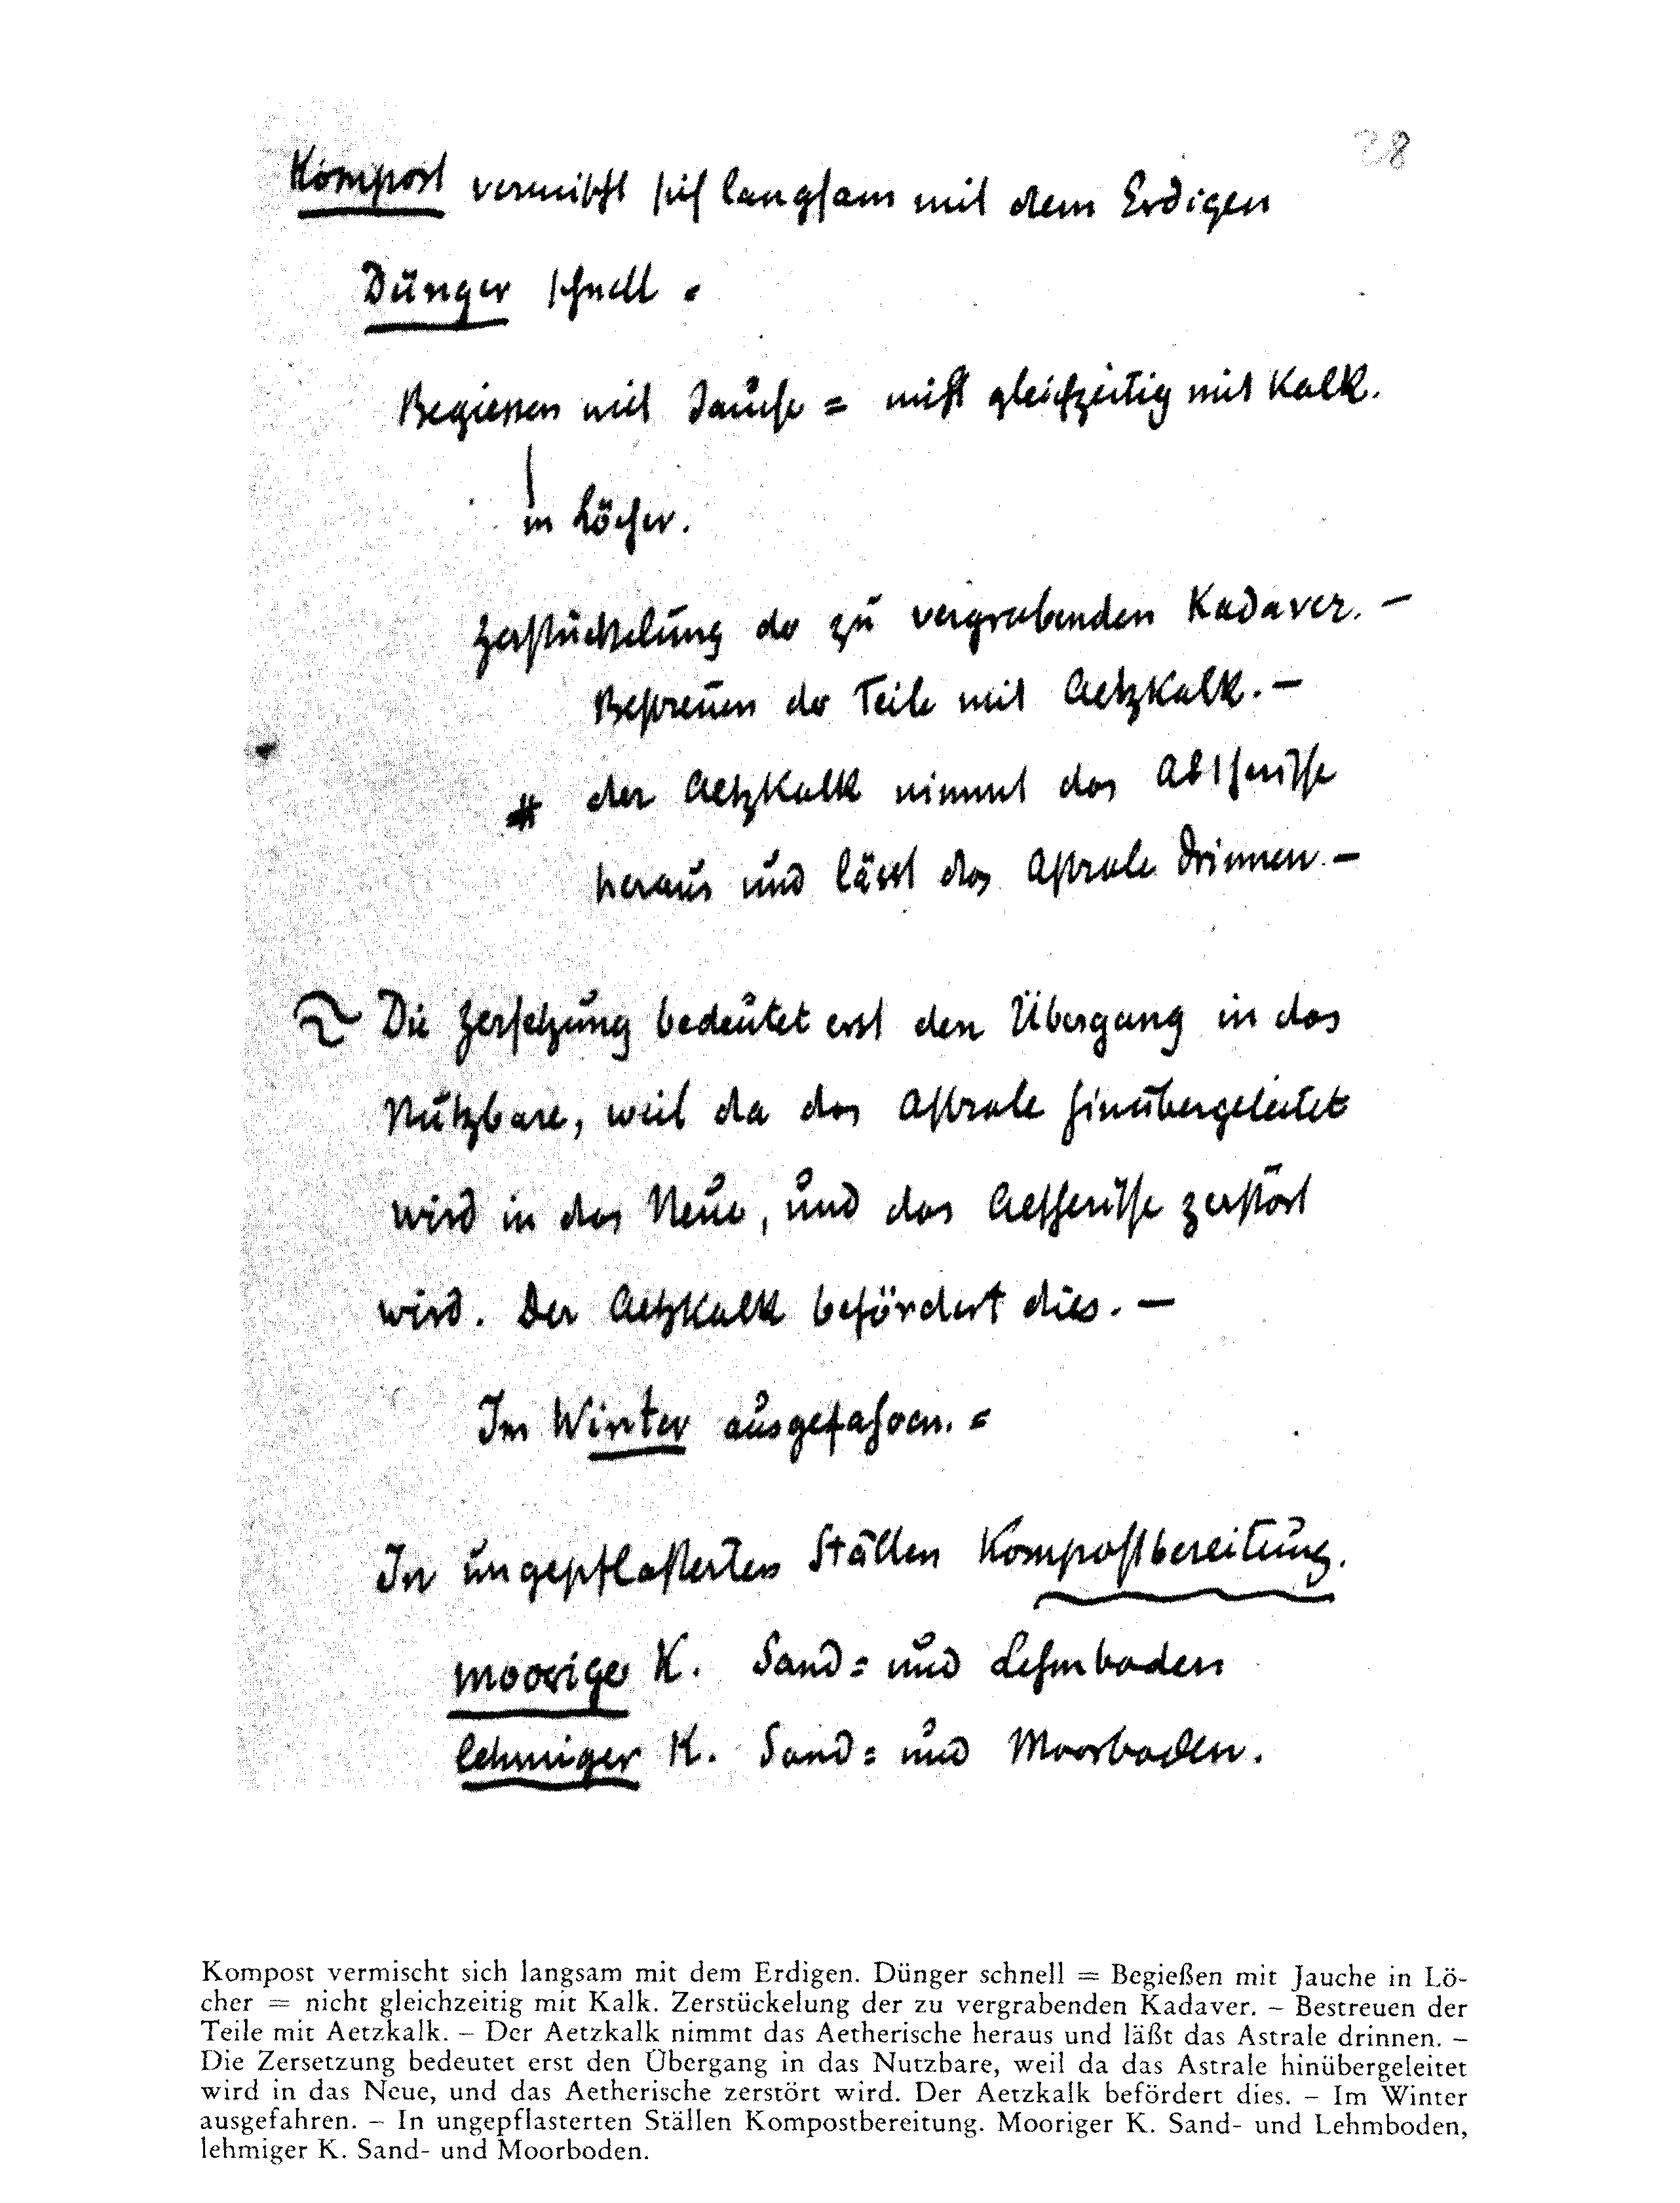 28
Kompost vermischt sich langsam mit dem Erdigen
Dünger schnell =
Begiessen mit Jauche = nicht gleichzeitig mit Kalk.
in Löcher.
Zerstückelung der zu vergrabenden Kadaver. –
Bestreuen der Teile mit Aetzkalk. –
# der Aetzkalk nimmt das
heraus und lässt das Astrale drinnen. –
Die Zersetzung bedeutet erst den Übergang in das
Nutzbare, weil da das Astrale hinübergeleitet
wird in das Neue, und das Aetherische zerstört
wird. Der Aetzkalk befördert dies. –
Im Winter ausgefahren. =
In ungepflasterten Ställen Kompostbereitung.
mooriger K. Sand= und Lehmboden
lehmiger K. Sand= und Moorboden.
Kompost vermischt sich langsam mit dem Erdigen. Dünger schnell = Begießen mit Jauche in Lö-
cher = nicht gleichzeitig mit Kalk. Zerstückelung der zu vergrabenden Kadaver. – Bestreuen der
Teile mit Aetzkalk. – Der Aetzkalk nimmt das Aetherische heraus und läßt das Astrale drinnen. –
Die Zersetzung bedeutet erst den Übergang in das Nutzbare, weil da das Astrale hinübergeleitet
wird in das Neue, und das Aetherische zerstört wird. Der Aetzkalk befördert dies. – Im Winter
ausgefahren. – In ungepflasterten Ställen Kompostbereitung. Mooriger K. Sand- und Lehmboden,
lehmiger K. Sand- und Moorboden.